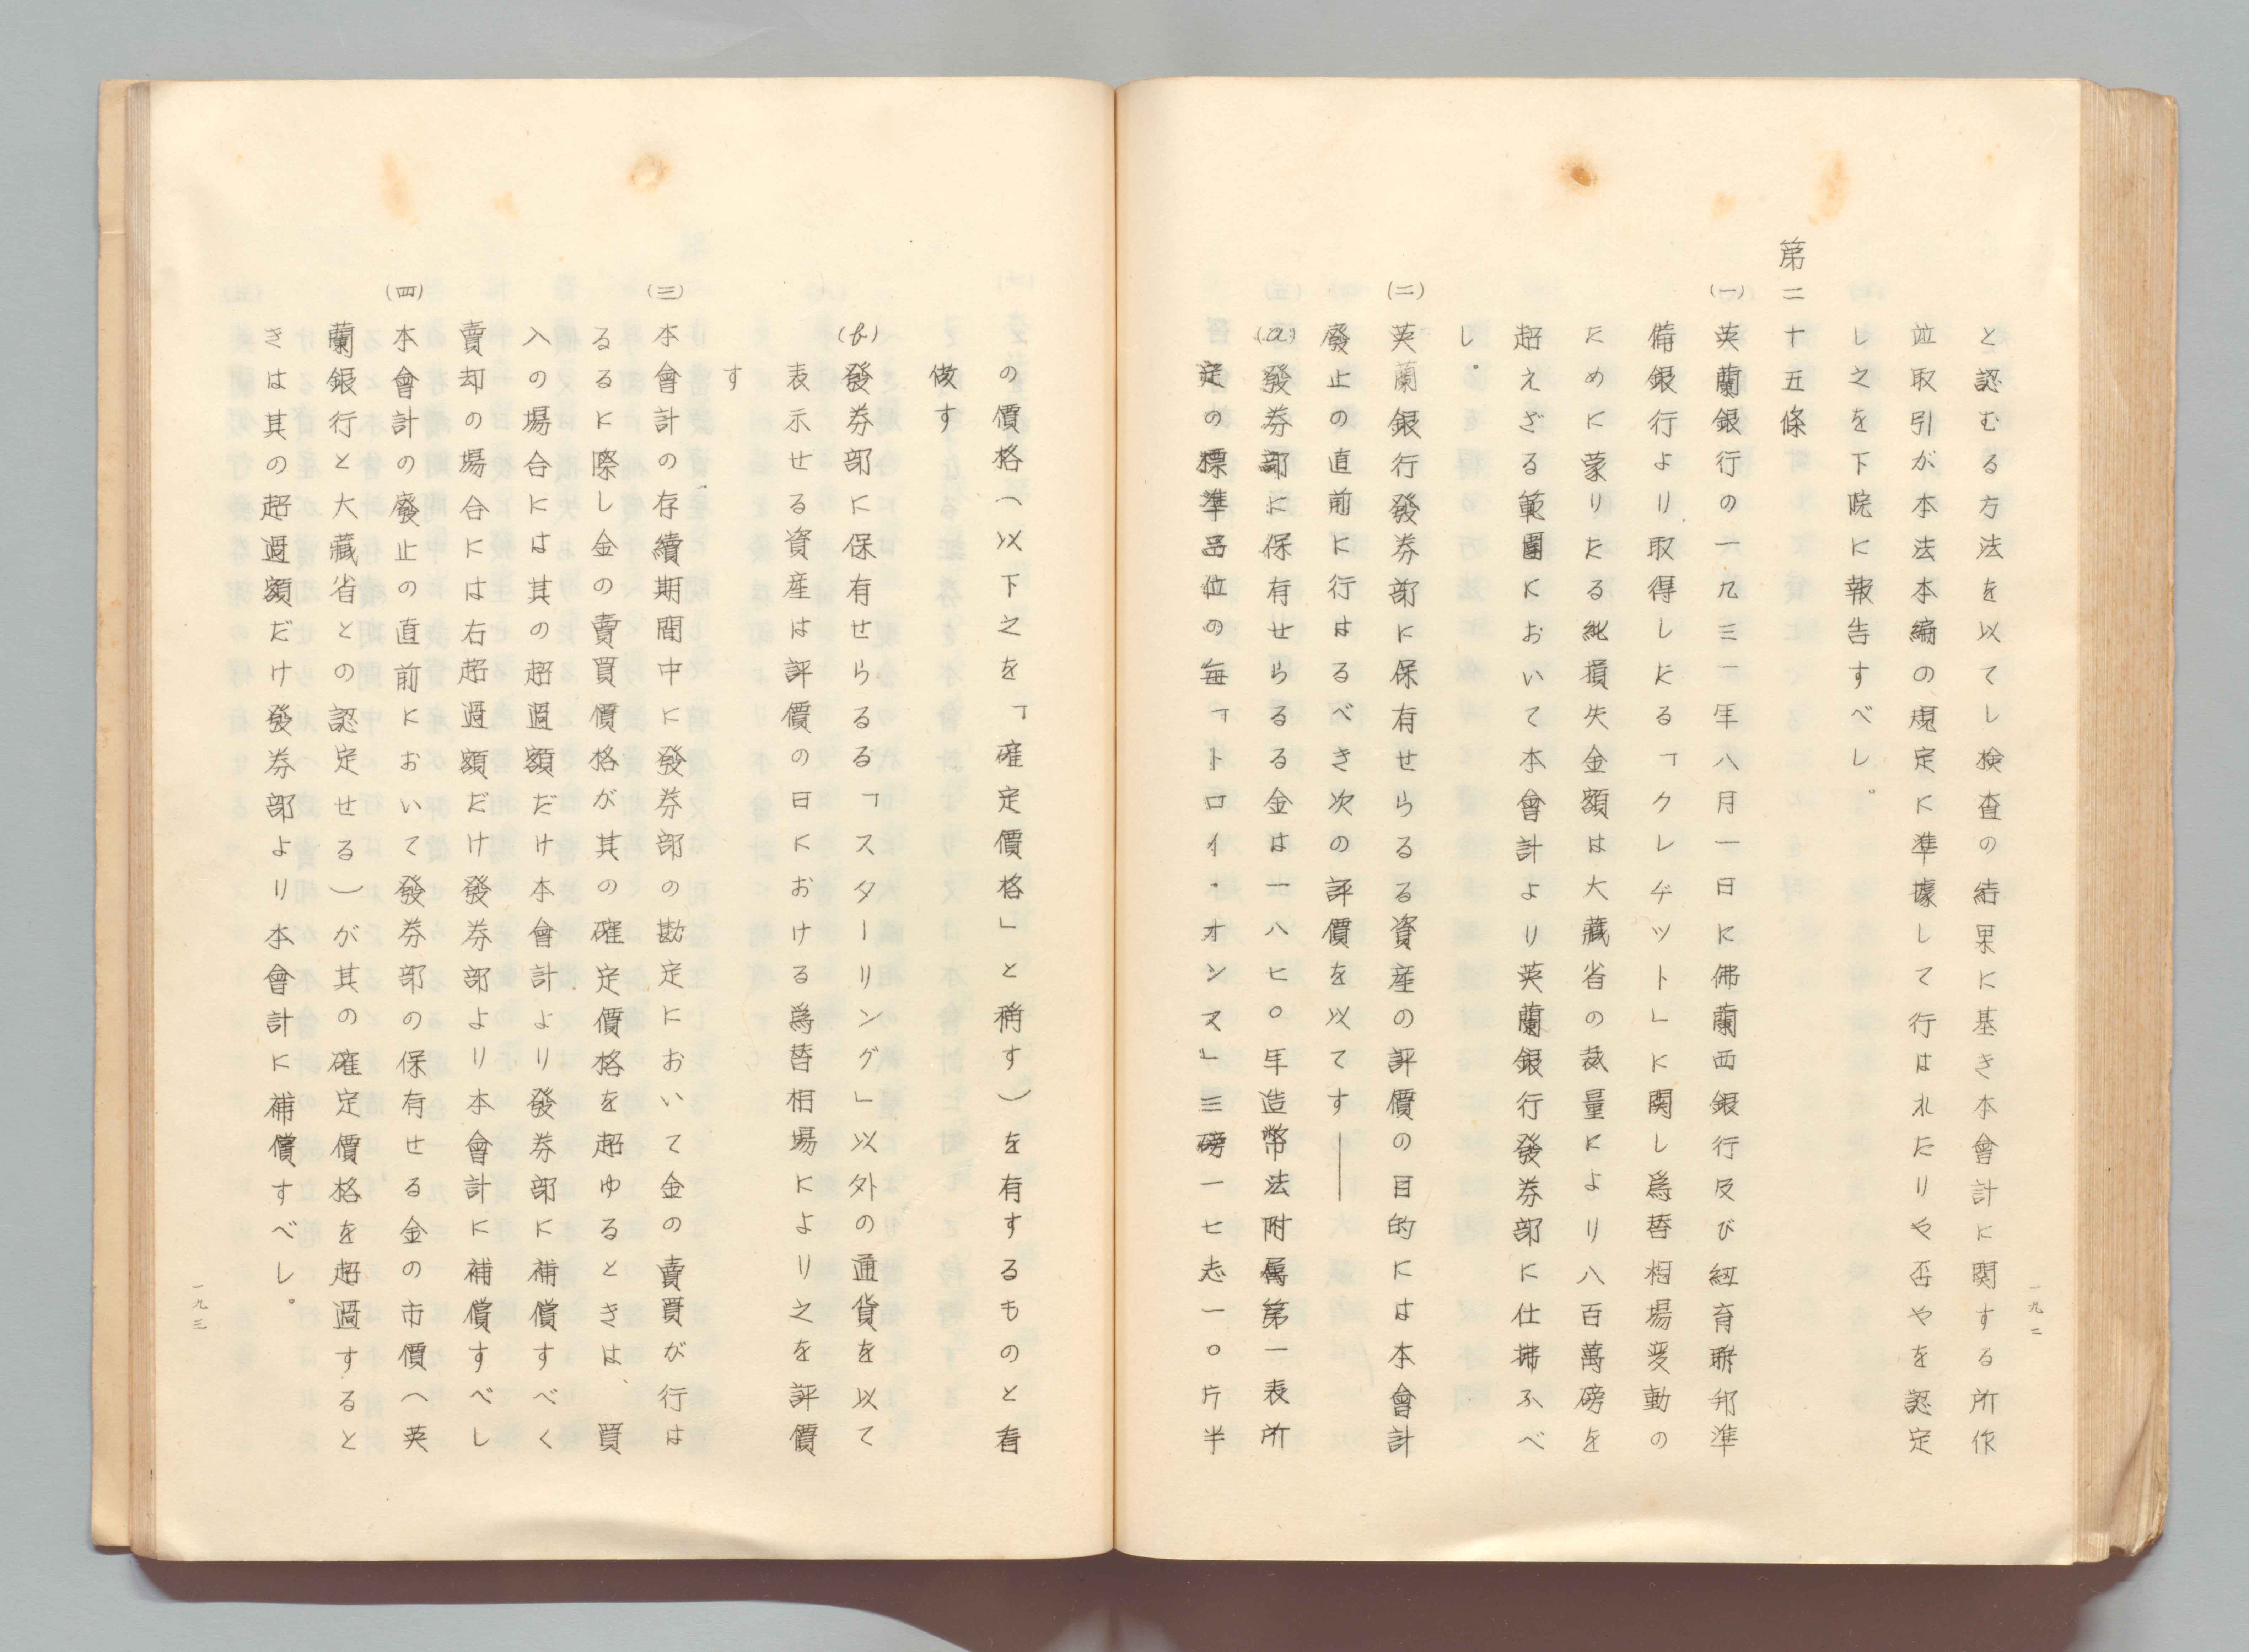 と認むる方法を以てし檢査の結果に基き本會計に関する所作
竝取引が本法本編の規定に準據して行はれたりや否やを認定
し之を下院に報告すべし。
第二十五條
(一)英蘭銀行の一九三一年八月一日に佛蘭西銀行及び紐育聯邦準
備銀行より取得したる「クレヂット」に関し爲替相場変動の
ために蒙りたる純損失金額は大藏省の裁量により八百萬磅を
超えざる範圍において本會計より英蘭銀行發券部に仕拂ふべ
し。
(二)英蘭銀行發券部に保有せらるる資産の評價の目的には本會計
廢止の直前に行はるべき次の評價を以てす——
(a)發券部に保有せらるる金は一八七〇年造幣法附属第一表所
定の標準品位の毎「トロイ・オンス」三磅一七志一〇片半
一九二
の價格(以下之を「確定價格」と稱す)を有するものと看
做す
(b)發券部に保有せらるる「スターリング」以外の通貨を以て
表示せる資産は評價の日における爲替相場により之を評價
す
(三)本會計の存續期間中に發券部の勘定において金の賣買が行は
るるに際し金の賣買價格が其の確定價格を超ゆるときは、買
入の場合には其の超過額だけ本會計より發券部に補償すべく
賣却の場合には右超過額だけ發券部より本會計に補償すべし
(四)本會計の廢止の直前において發券部の保有せる金の市價(英
蘭銀行と大藏省との認定せる)が其の確定價格を超過すると
きは其の超過額だけ發券部より本會計に補償すべし。
一九三